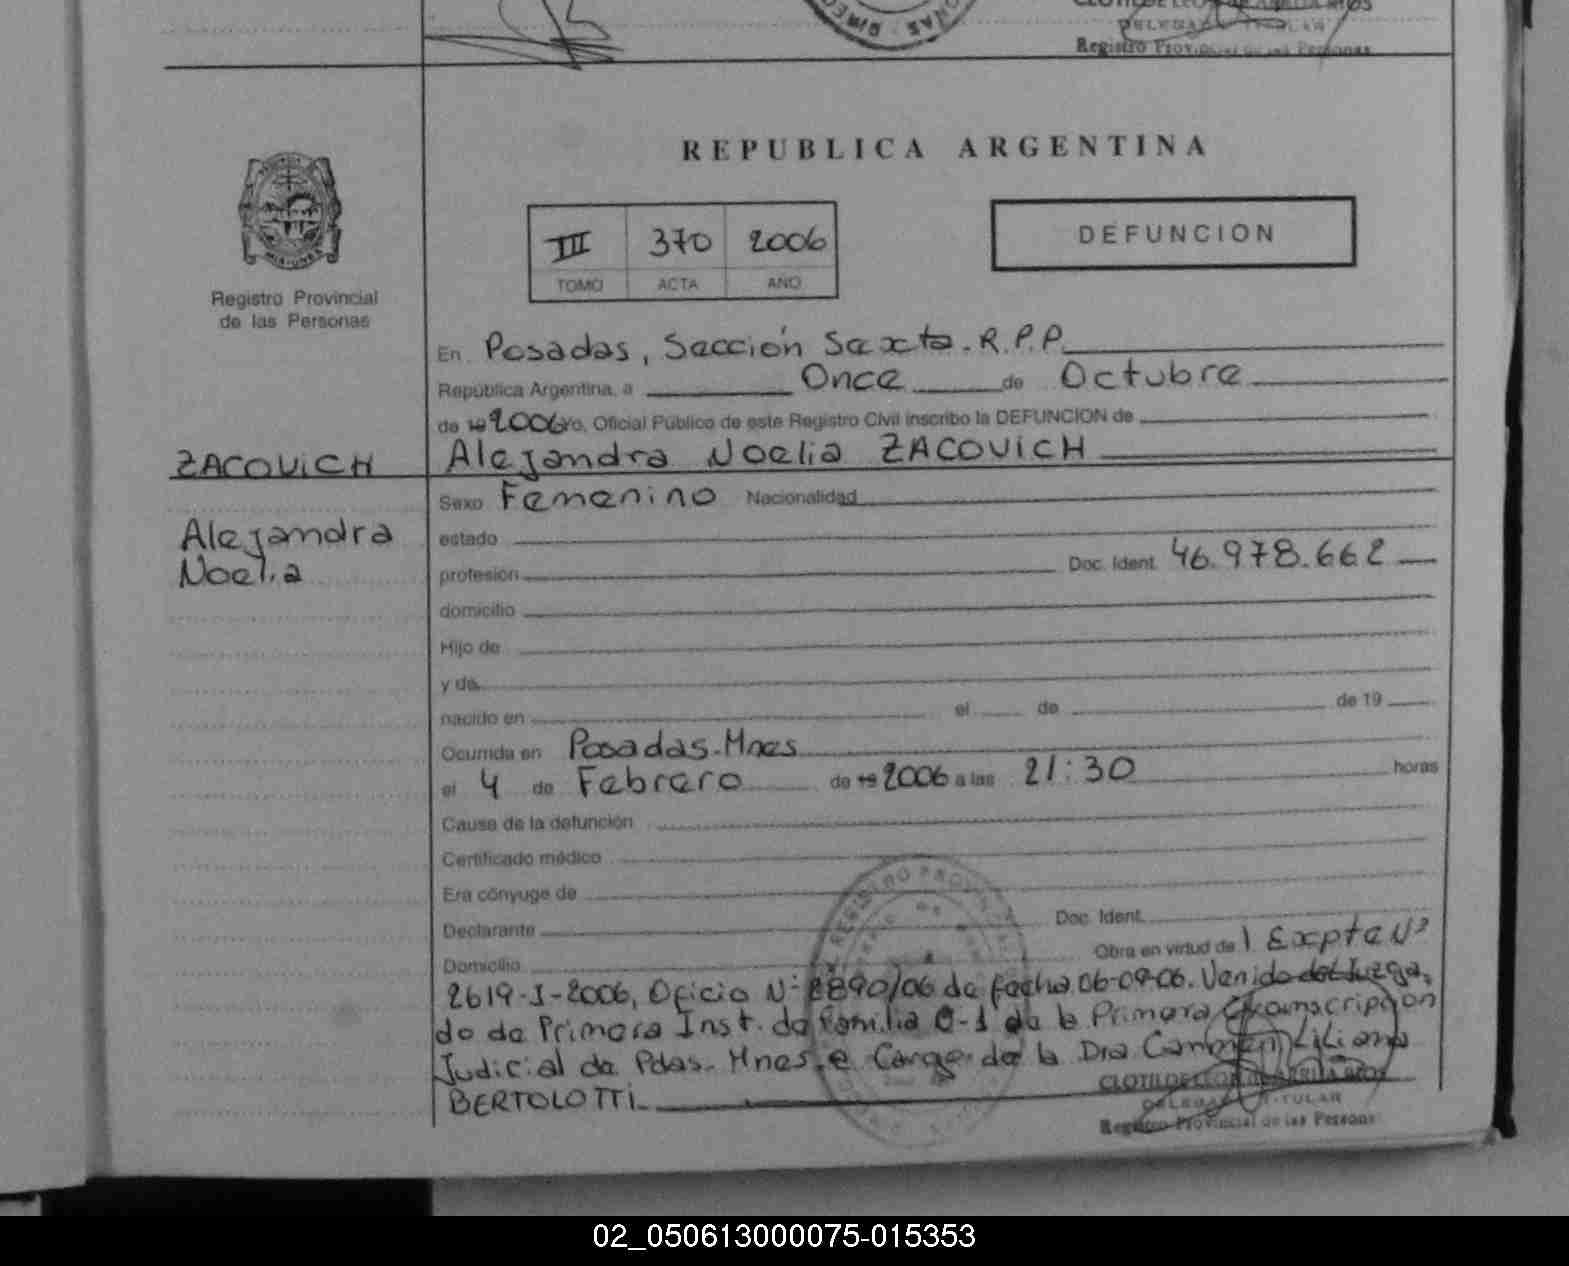 Registro Provincial de las Personas
REPUBLICA ARGENTINA
III 370 2006
TOMO ACTA AÑO
DEFUNCION
MISIONES
Registro Provincial
de las Personas
En Posadas, Sección Sexta. R.P.P.
República Argentina, a Once de Octubre
de 19 2006 Yo, Oficial Público de este Registro Civil inscribo la DEFUNCION de
ZACOVICH
Alejandra Noelia ZACOVICH
Alejandra
Noelia
Sexo Femenino Nacionalidad
estado
profesión Doc. Ident. 46.978.662
domicilio
Hijo de
y de
nacido en el de de 19
Ocurrida en Posadas-Mnes
el 4 de Febrero de 19 2006 a las 21:30 horas
Causa de la defunción
Certificado médico
Era cónyuge de
Declarante Doc. Ident.
Domicilio Obra en virtud de Expte Nº
2619-I-2006, Oficio Nº 2890/06 de fecha 06-09-06. Venido del Juzga-
do de Primera Inst. de Familia Nº 1 de la Primera Circunscripción
Judicial de Pdas. Mnes. a Cargo de la Dra Carmen Liliana
BERTOLOTTI
DELEGADA TITULAR
Registro Provincial de las Personas
02_050613000075-015353